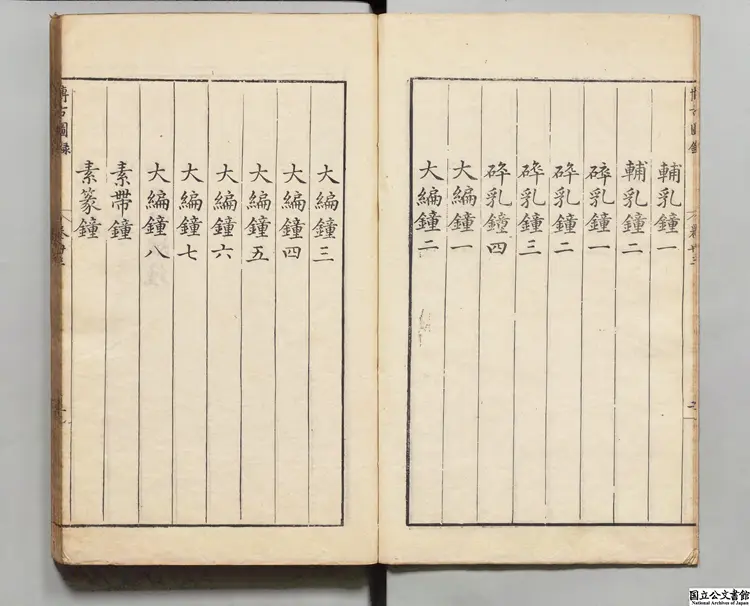 輔乳鐘一
輔乳鐘二
碎乳鐘一
碎乳鐘二
碎乳鐘三
碎乳鐘四
大編鐘一
大編鐘二
大編鐘三
大編鐘四
大編鐘五
大編鐘六
大編鐘七
大編鐘八
素帶鐘
素篆鐘
博古圖錄
国立公文書館
National Archives of Japan